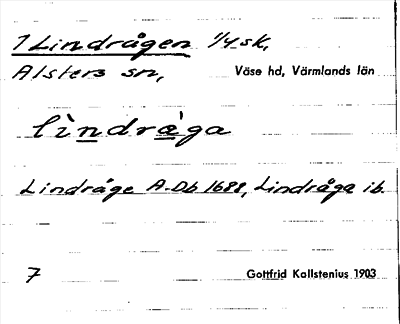 1 Lindrågen 1/4 sk,
Alsters sn, Väse hd, Värmlands län
lìndrȧga
Lindråge A-Db 1688, Lindråga ib.
7 Gottfrid Kallstenius 1903